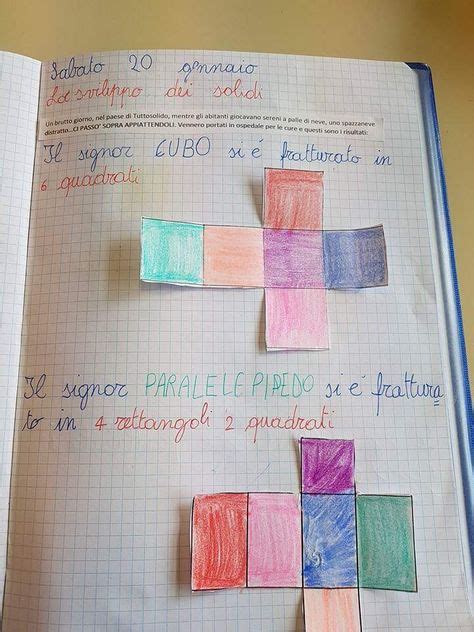 Sabato 20 gennaio
Lo sviluppo dei solidi
Un brutto giorno, nel paese di Tuttosolido, mentre gli abitanti giocavano sereni a palle di neve, uno spazzaneve
distratto...CI PASSO' SOPRA APPIATTENDOLI. Vennero portati in ospedale per le cure e questi sono i risultati:
Il signor CUBO si é fratturato in
6 quadrati
Il signor PARALELEPIPEDO si é frattura
to in 4 rettangoli 2 quadrati